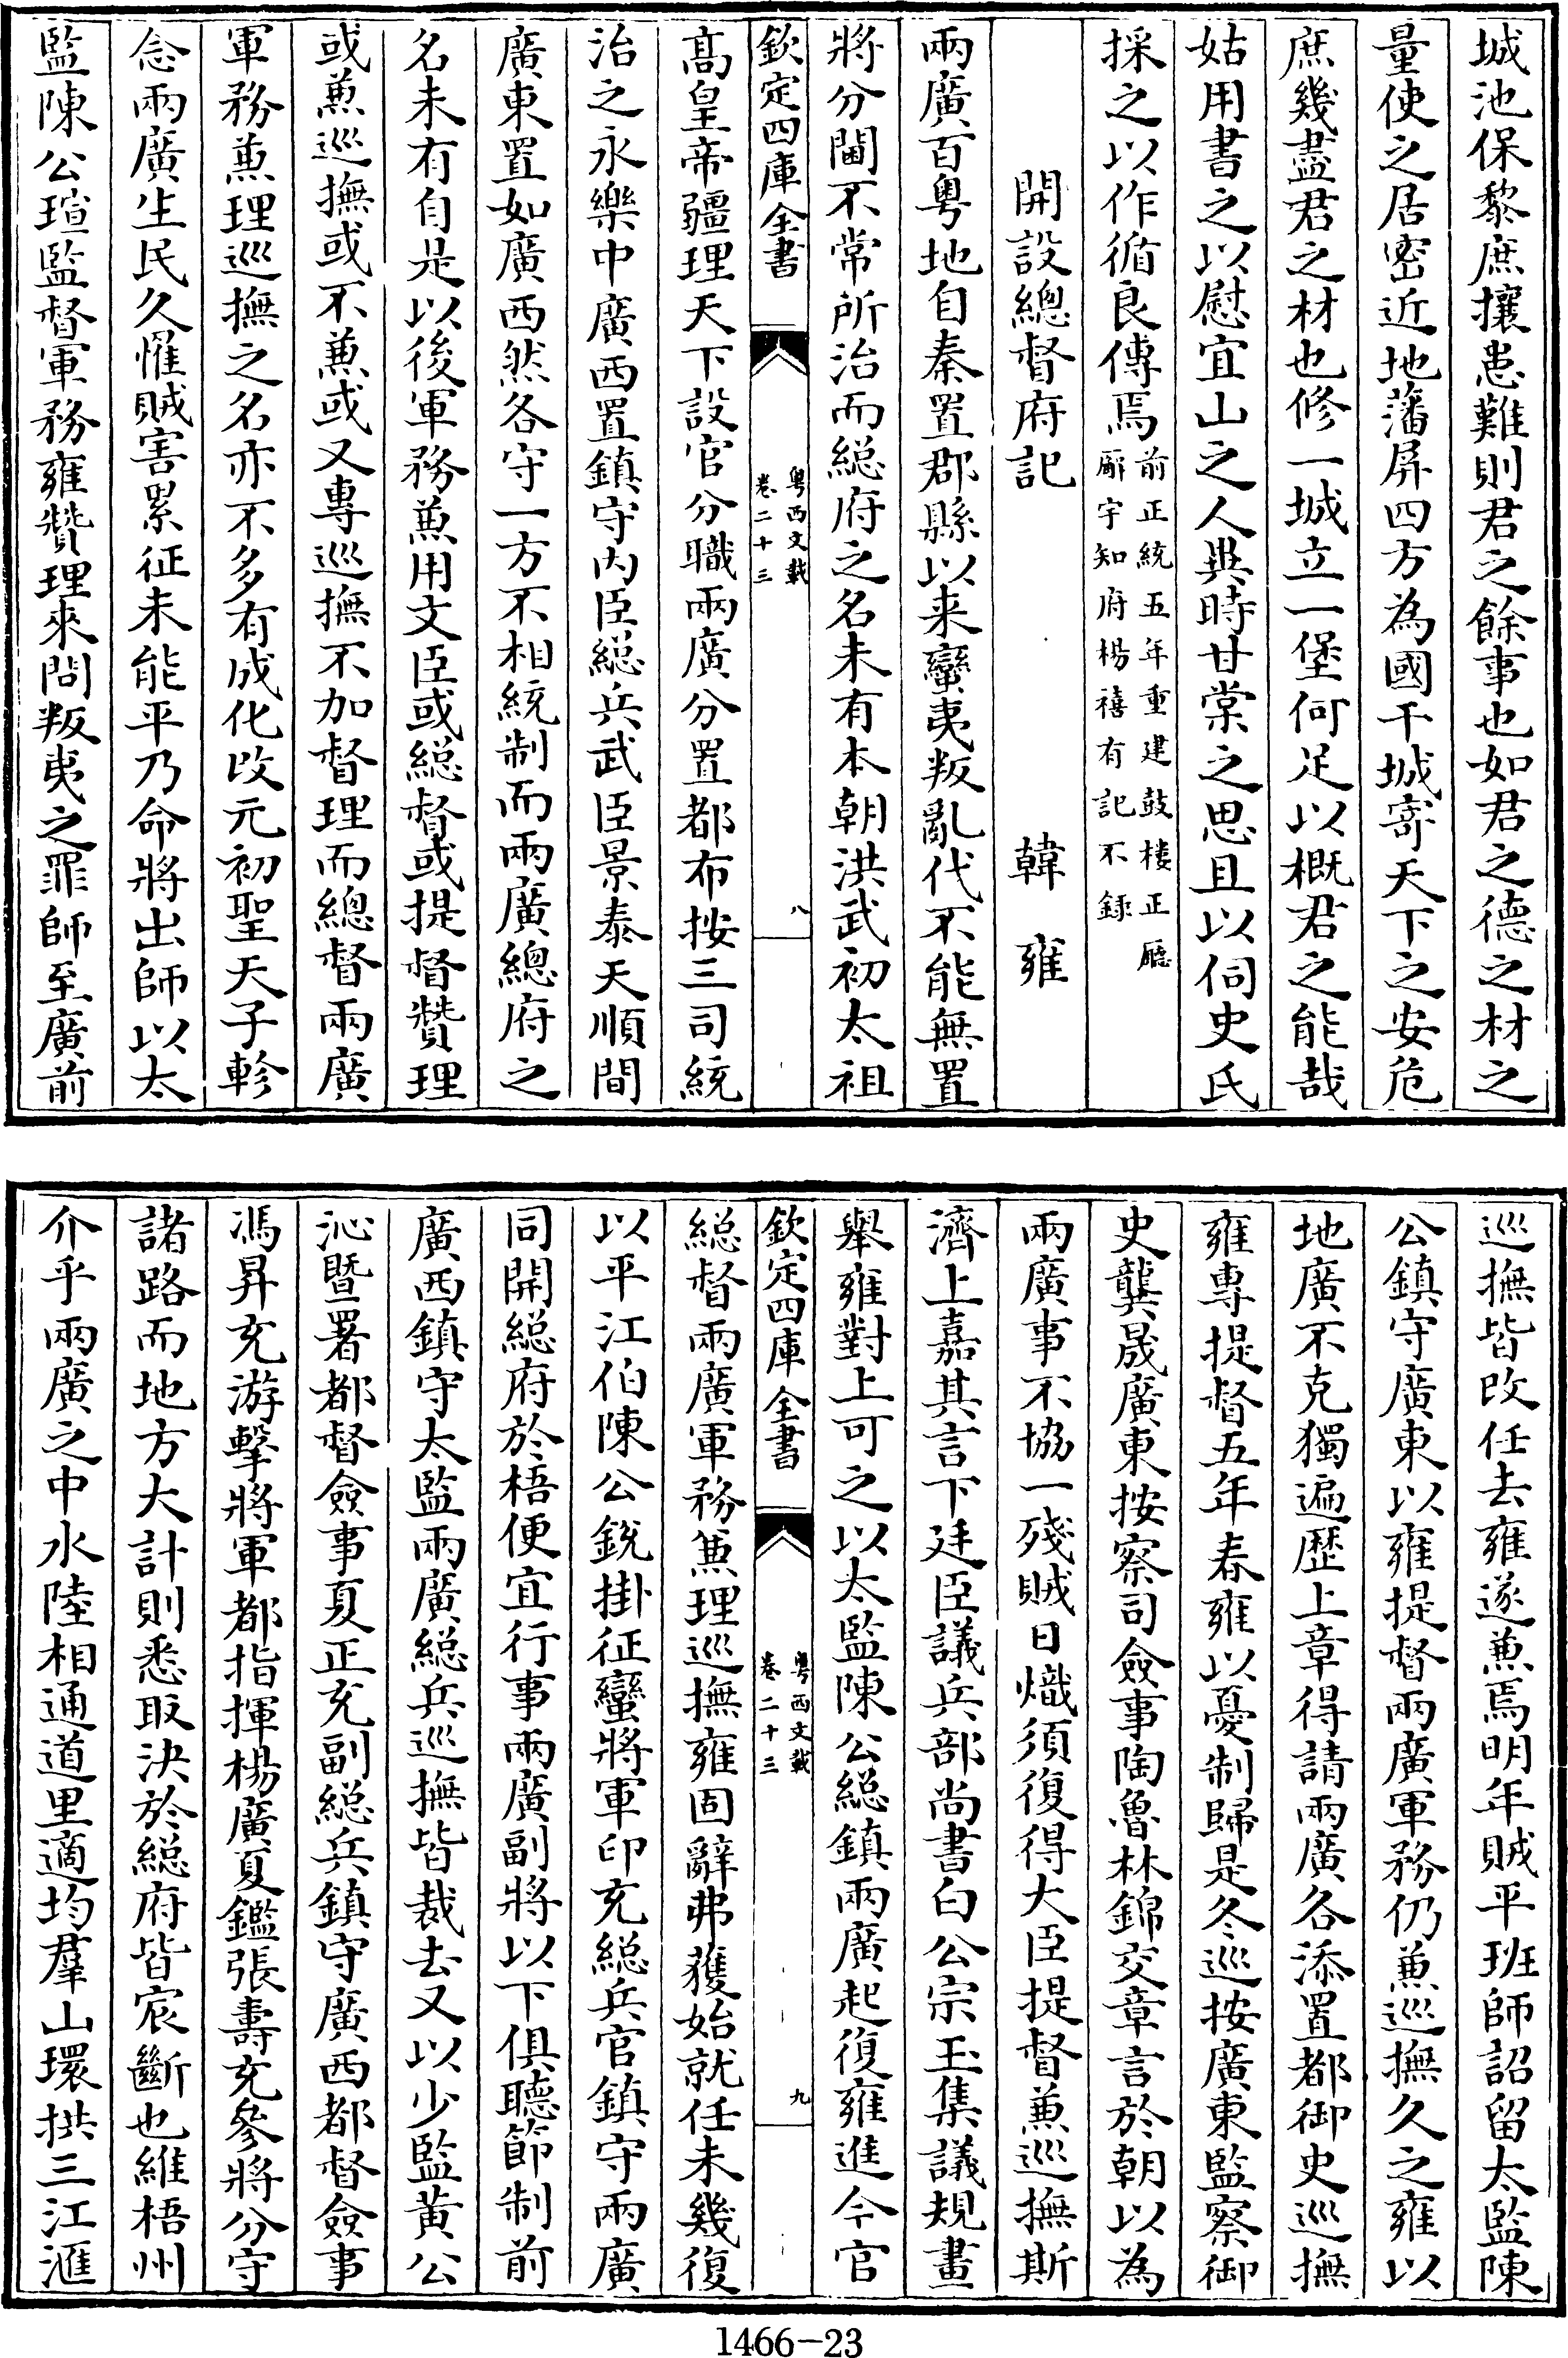 城池保黎庶攘患難則君之餘事也如君之德之材之
量使之居密近地藩屏四方為國干城寄天下之安危
庶幾盡君之材也修一城立一堡何足以概君之能哉
姑用書之以慰宜山之人與時甘棠之思且以伺史氏
採之以作循良傳焉前正統五年重建鼓楼正廳
廨宇知府楊禧有記不錄
開設總督府記　韓雍
兩廣百粤地自秦置郡縣以来蠻夷叛亂代不能無置
將分閫不常所治而緫府之名未有本朝洪武初太祖
欽定四庫全書　粤西文載
卷二十三　八
髙皇帝疆理天下設官分職兩廣分置都布按三司統
治之永樂中廣西置鎮守内臣緫兵武臣景泰天順間
廣東置如廣西然各守一方不相統制而兩廣總府之
名未有自是以後軍務兼用文臣或緫督或提督贊理
或兼巡撫或不兼或又專巡撫不加督理而總督兩廣
軍務兼理巡撫之名亦不多有成化改元初聖天子軫
念兩廣生民久惟賊害累征未能平乃命將出師以太
監陳公瑄監督軍務雍贊理來問叛夷之罪師至廣前
巡撫皆改任去雍遂兼焉明年賊平班師詔留太監陳
公鎮守廣東以雍提督兩廣軍務仍兼巡撫久之雍以
地廣不克獨遍歷上章得請兩廣各添置都御史巡撫
雍專提督五年春雍以憂制歸是冬巡按廣東監察御
史龔晟廣東按察司僉事陶魯林錦交章言於朝以為
兩廣事不協一殘賊日熾須復得大臣提督兼巡撫斯
濟上嘉其言下廷臣議兵部尚書白公宗玉集議規畫
舉雍對上可之以太監陳公緫鎮兩廣起復雍進今官
欽定四庫全書　粤西文載
卷二十三　九
緫督兩廣軍務兼理巡撫雍固辭弗獲始就任未幾復
以平江伯陳公銳掛征蠻將軍印充緫兵官鎮守兩廣
同開緫府於梧便宜行事兩廣副將以下俱聽節制前
廣西鎮守太監兩廣緫兵巡撫皆裁去又以少監黄公
沁暨署都督僉事夏正充副緫兵鎮守廣西都督僉事
馮昇充游擊將軍都指揮楊廣夏鑑張夀充參將分守
諸路而地方大計則悉取決於緫府皆宸斷也維梧州
介乎兩廣之中水陸相通道里適均羣山環拱三江滙
1466-23